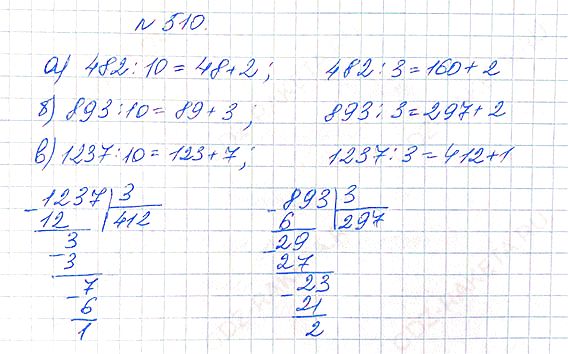 № 510.
а) 482 : 10 = 48 + 2 ; 482 : 3 = 160 + 2
б) 893 : 10 = 89 + 3 ; 893 : 3 = 297 + 2
в) 1237 : 10 = 123 + 7 ; 1237 : 3 = 412 + 1
- 1237 | 3
12 | 412
- 3
3
- 7
6
1
- 893 | 3
6 | 297
- 29
27
- 23
21
2